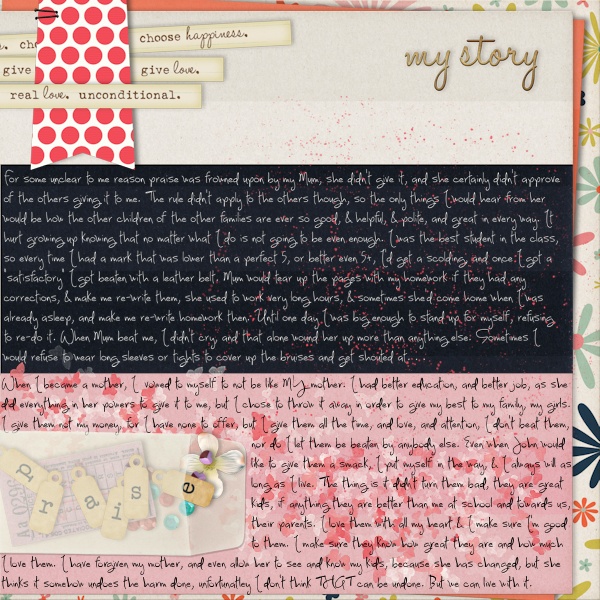 s. cho choose happiness.
my story
give give love.
real love. unconditional.
For some unclear to me reason praise was frowned upon by my Mum, she didn't give it, and she certainly didn't approve
of the others giving it to me. The rule didn't apply to the others though, so the only things I would hear from her
would be how the other children of the other families are ever so good, & helpful, & polite, and great in every way. It
hurt growing up knowing that no matter what I do is not going to be even enough. I was the best student in the class,
so every time I had a mark that was lower than a perfect 5, or better even 5+, I'd get a scolding, and once I got a
"satisfactory" I got beaten with a leather belt. Mum would tear up the pages with my homework if they had any
corrections, & make me re-write them, she used to work very long hours, & sometimes she'd come home when I was
already asleep, and make me re-write homework then. Until one day I was big enough to stand up for myself, refusing
to re-do it. When Mum beat me, I didn't cry, and that alone wound her up more than anything else. Sometimes I
would refuse to wear long sleeves or tights to cover up the bruises and get shouted at....
When I became a mother, I vowed to myself to not be like MY mother. I had better education, and better job, as she
did everything in her powers to give it to me, but I chose to throw it away in order to give my best to my family, my girls.
I give them not my money, for I have none to offer, but I give them all the time, and love, and attention, I don't beat them,
nor do I let them be beaten by anybody else. Even when John would
like to give them a smack, I put myself in the way, & I always will as
long as I live. The thing is it didn't turn them bad, they are great
kids, if anything they are better than me at school and towards us,
their parents. I love them with all my heart & I make sure I'm good
to them. I make sure they know how great they are and how much
I love them. I have forgiven my mother, and even allow her to see and know my kids, because she has changed, but she
thinks it somehow undoes the harm done, unfortunatley I don't think THAT can be undone. But we can live with it.
praise